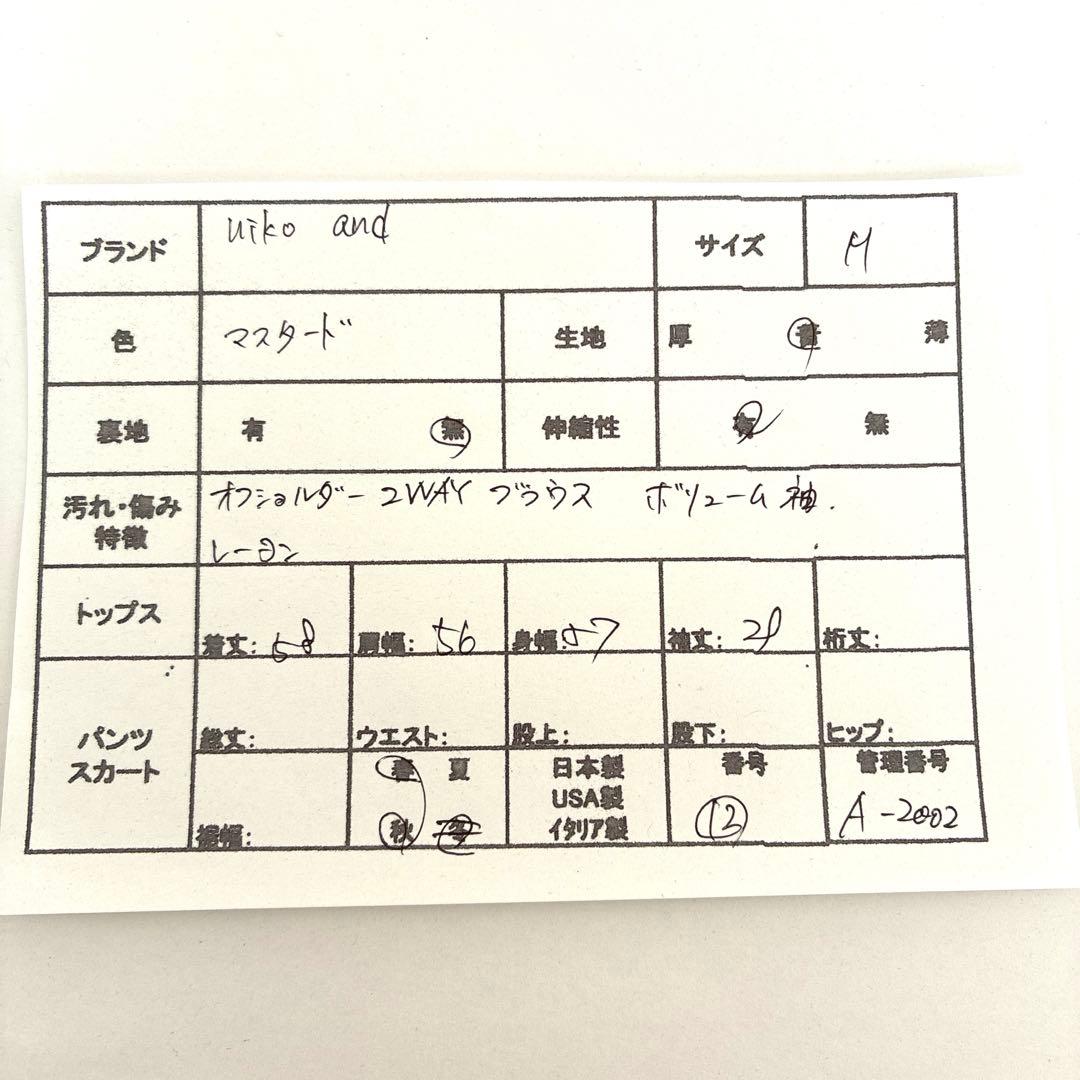 ブランド uiko and サイズ M
色 マスタード 生地 厚 普 薄
裏地 有 無 伸縮性 有 無
汚れ・傷み 特徴 オフショルダー 2WAY ブラウス ボリューム袖.
レーヨン
トップス 着丈: 58 肩幅: 56 身幅: 57 袖丈: 29 裄丈:
パンツ スカート 総丈: ウエスト: 股上: 股下: ヒップ:
裾幅: 春 夏 秋 冬 日本製 USA製 イタリア製 番号 13 管理番号 A-2002